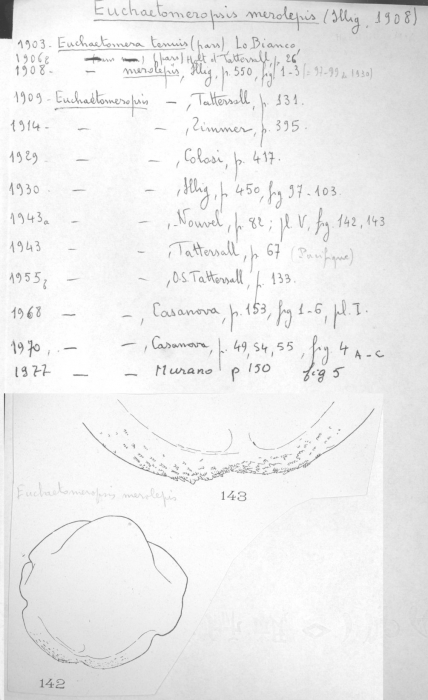 Euchaetomeropsis merolepis (Illig, 1908)
1903 - Euchaetomera tenuis (pars) Lo Bianco,
1906 (pars) Holt et Tattersall, p. 26
1908 - - merolepis, Illig, p. 550, fig 1-3
1909 - Euchaetomeropsis -, Tattersall, p. 131.
1914 - - - , Zimmer, p. 395.
1929 - - , Colosi, p. 417.
1930 - - , Illig, p. 450, fig 97-103.
1943a - - , Nouvel, p. 82 ; pl. V, fig. 142, 143
1943 - - , Tattersall, p. 67 (Pacifique)
1955 - - , O.S. Tattersall, p. 133.
1968 - - , Casanova, p. 153, fig 1-6, pl. I.
1970 - - , Casanova, p. 49, 54, 55, fig 4 A-C
1977 - - Murano p 150 fig 5
Euchaetomeropsis merolepis
143
142